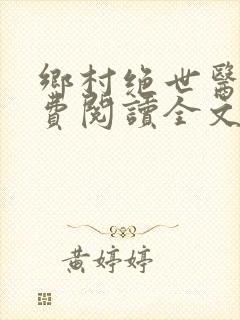 鄉村絕世醫
費閱讀全文
黃婷婷